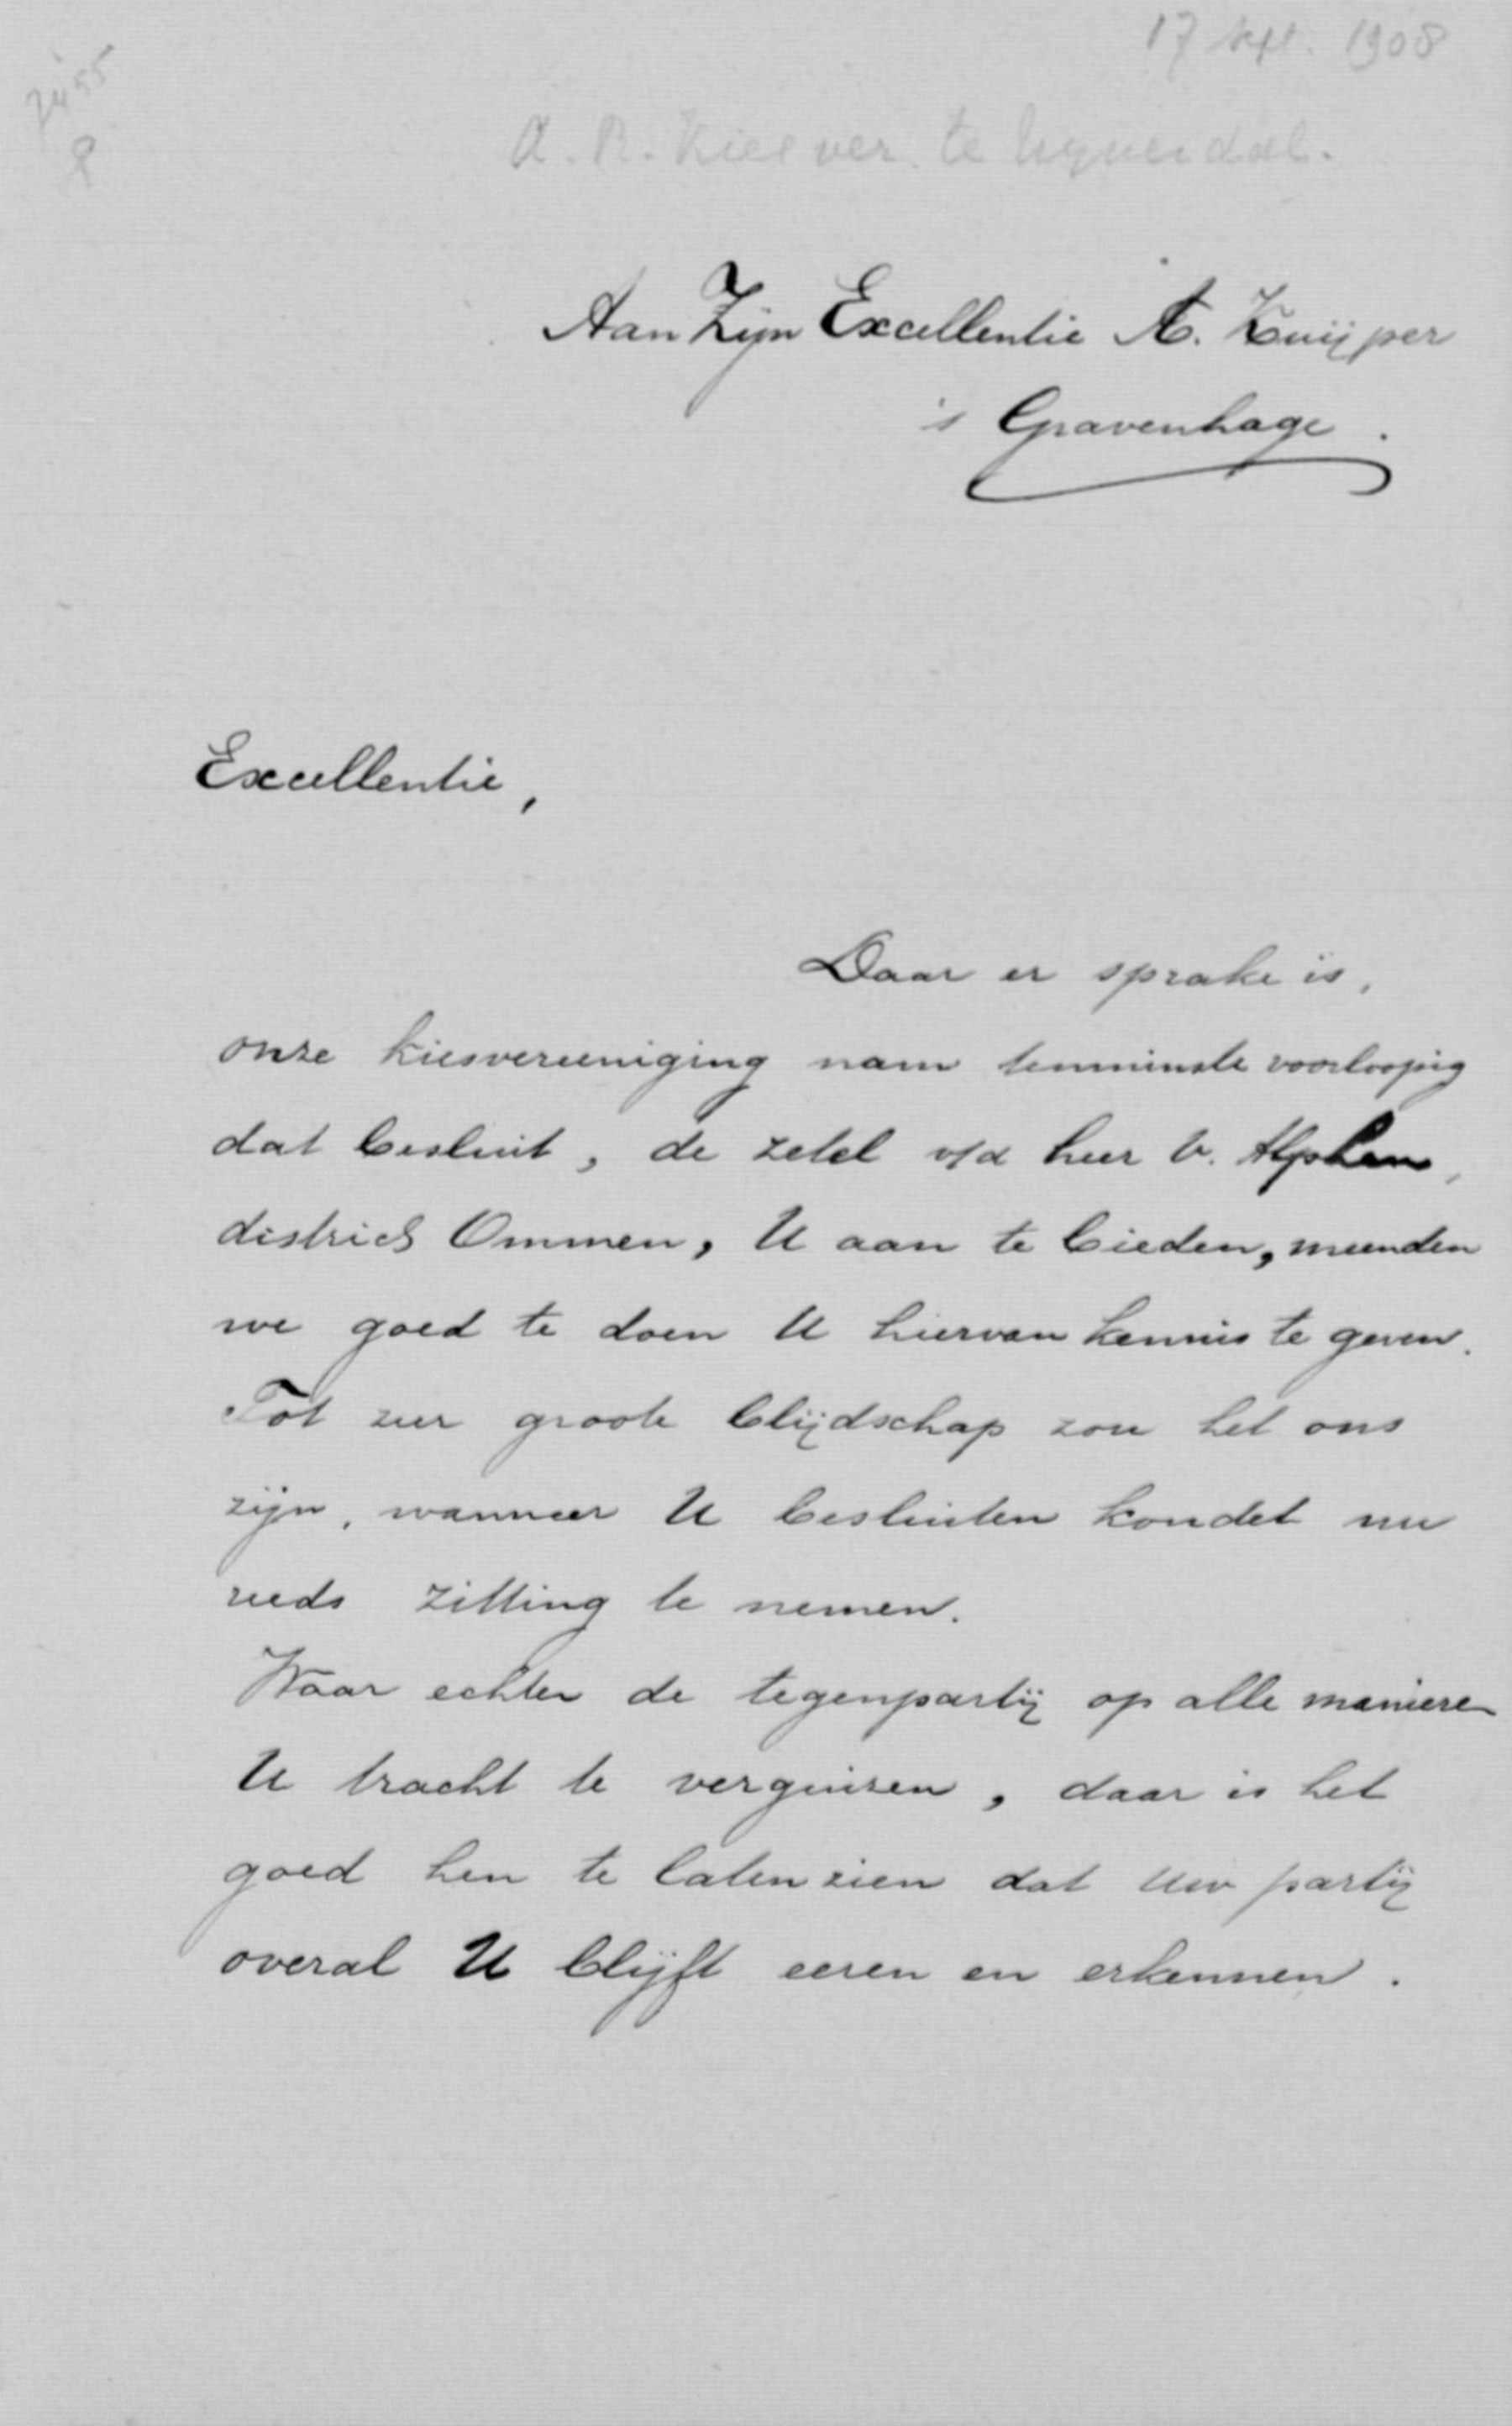 17 Sept. 1908
7455
8
A. R. Kiesver. te Nijverdal.
Aan Zijn Excellentie A. Kuijper
's Gravenhage.
Excellentie,
Daar er sprake is,
onze kiesvereeniging nam tenminste voorloopig
dat besluit, de zetel v/d heer v. Alphen,
district Ommen, U aan te bieden, meenden
we goed te doen U hiervan kennis te geven.
Tot zeer groote blijdschap zou het ons
zijn, wanneer U besluiten kondet nu
reeds zitting te nemen.
Waar echter de tegenpartij op alle manieren
U tracht te verguizen, daar is het
goed hen te laten zien dat Uw partij
overal U blijft eeren en erkennen.